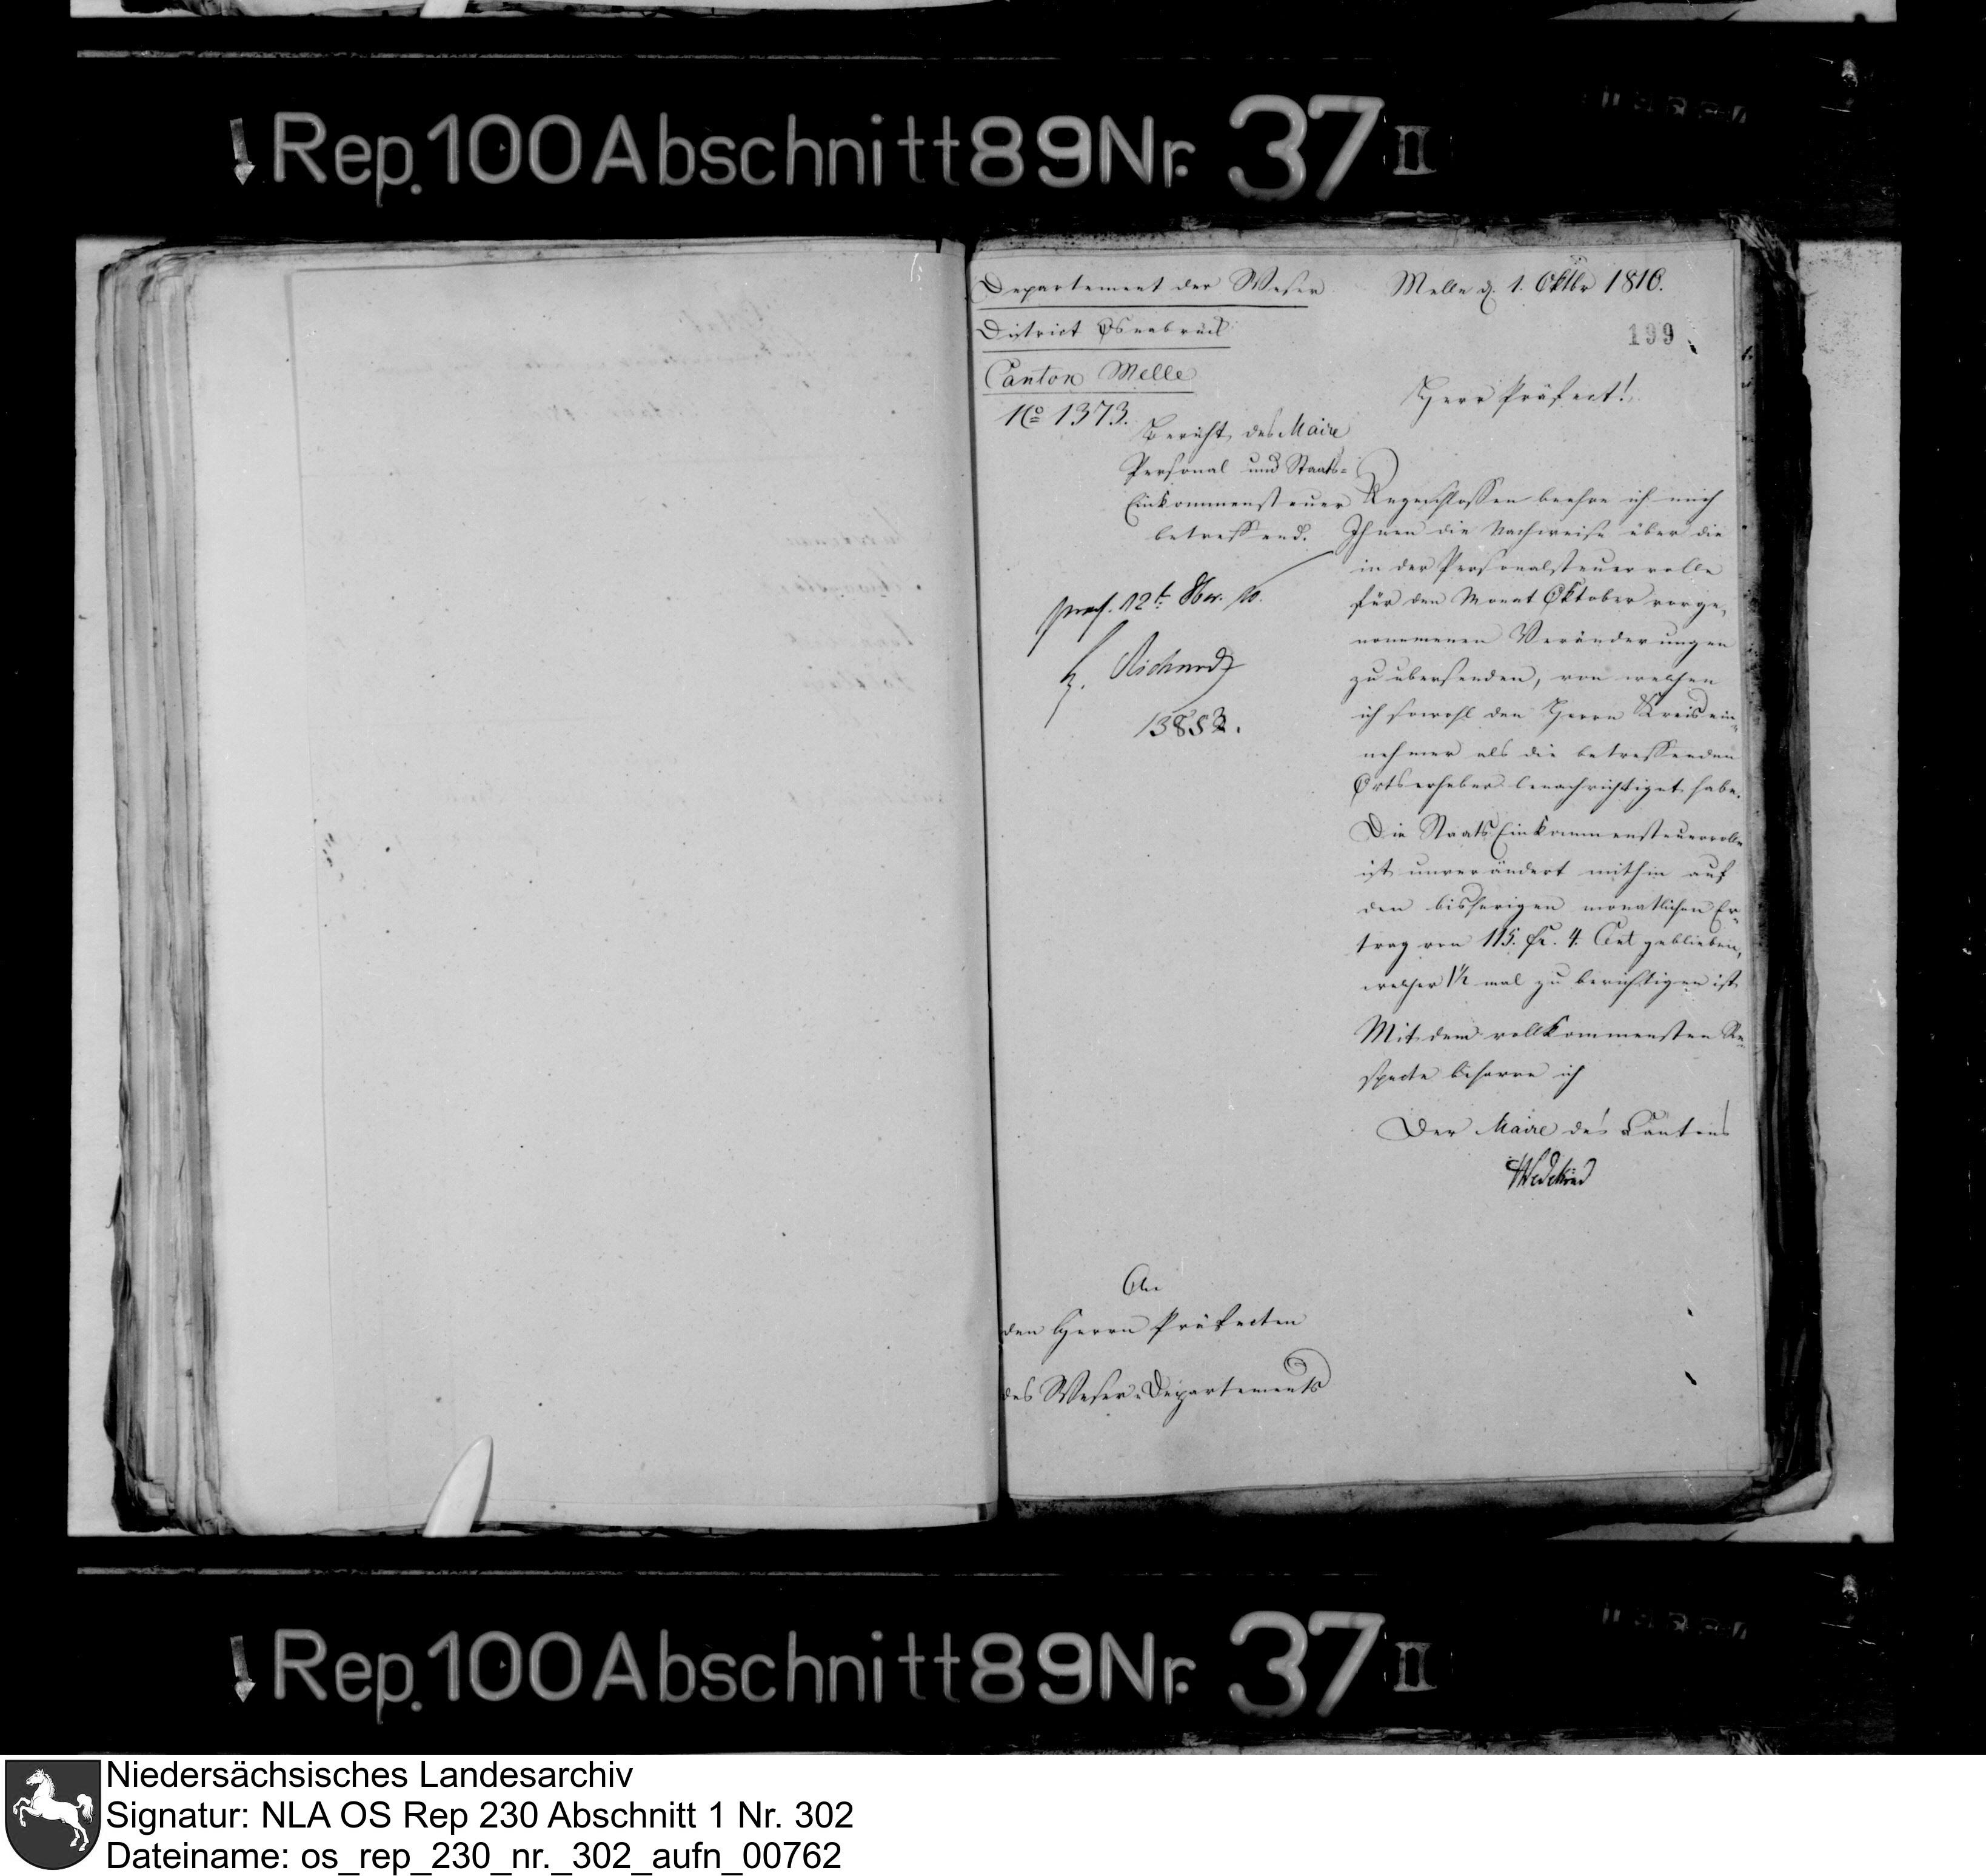 Rep. 100 Abschnitt 89 Nr. 37 II
Departement der Weser
District Osnabrück
Canton Melle
No 1373.
Bericht des Maire
Personal und Staats-
Einkommensteuer
betreffend.
praes. 12t 8br. 10.
Richard
1385
Melle d. 1. Oktbr 1810.
199
Herr Präfect!
Angeschlossen beehre ich mich
Ihnen die Nachweise über die
in der Personalsteuerrolle
für den Monat Oktober vorge-
nommenen Veränderungen
zu übersenden, von welchen
ich sowohl den Herrn Kreisein-
nehmer als die betreffenden
Ortserheber benachrichtiget habe.
Die Staats Einkommensteuerrolle
ist unverändert mithin auf
den bisherigen monatlichen Er-
trag von 115. fr. 4. Cent geblieben,
welcher 1½ mal zu berichtigen ist
Mit dem vollkommensten Re-
specte beharre ich
Der Maire des Cantons
Wedekind
An
den Herrn Präfecten
des Weser-Departements
Rep. 100 Abschnitt 89 Nr. 37 II
Niedersächsisches Landesarchiv
Signatur: NLA OS Rep 230 Abschnitt 1 Nr. 302
Dateiname: os_rep_230_nr._302_aufn_00762